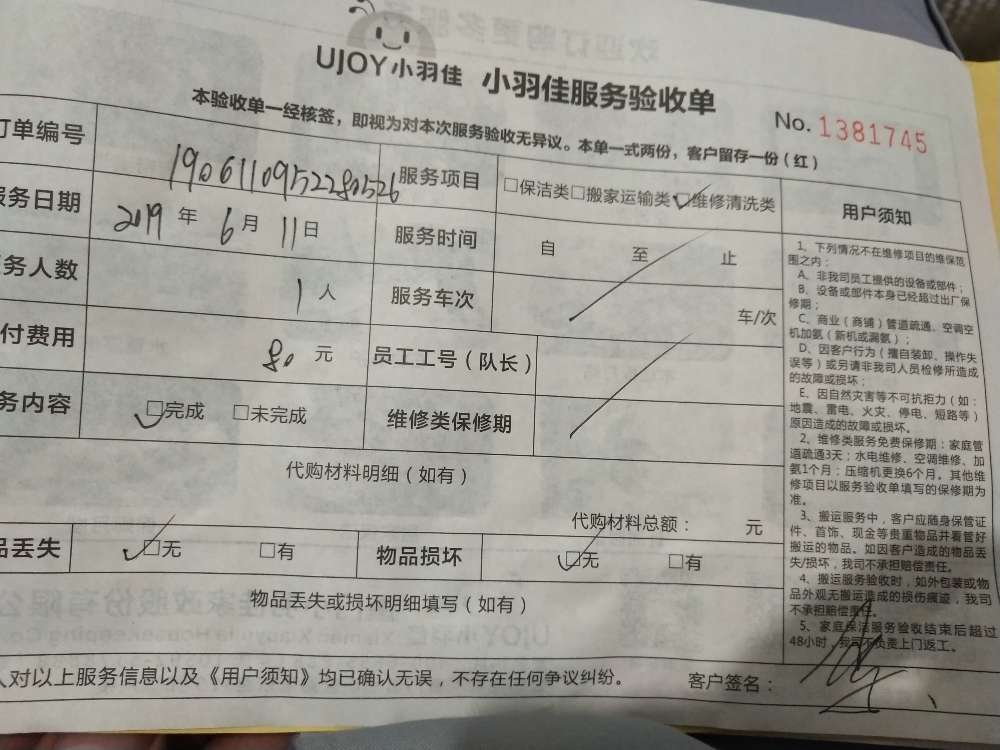 UJOY小羽佳 小羽佳服务验收单
No. 1381745
本验收单一经核签，即视为对本次服务验收无异议。本单一式两份，客户留存一份（红）
订单编号 1906110952280526 服务项目 □保洁类□搬家运输类□维修清洗类
务日期 2019 年 6 月 11 日 服务时间 自 至 止
务人数 1 人 服务车次 车/次
付费用 80 元 员工工号（队长）
务内容 □完成 □未完成 维修类保修期
代购材料明细（如有）
代购材料总额： 元
品丢失 □无 □有 物品损坏 □无 □有
物品丢失或损坏明细填写（如有）
人对以上服务信息以及《用户须知》均已确认无误，不存在任何争议纠纷。 客户签名：
用户须知
1、下列情况不在维修项目的维保范
围之内：
A、非我司员工提供的设备或部件；
B、设备或部件本身已经超过出厂保
修期；
C、商业（商铺）管道疏通、空调空
机加氨（新机或漏氨）；
D、因客户行为（擅自装卸、操作失
误等）或另请非我司人员检修所造成
的故障或损坏；
E、因自然灾害等不可抗拒力（如：
地震、雷电、火灾、停电、短路等）
原因造成的故障或损坏。
2、维修类服务免费保修期：家庭管
道疏通3天；水电维修、空调维修、加
氨1个月；压缩机更换6个月。其他维
修项目以服务验收单填写的保修期为
准。
3、搬运服务中，客户应随身保管证
件、首饰、现金等贵重物品并看管好
搬运的物品。如因客户造成的物品丢
失/损坏，我司不承担赔偿责任。
4、搬运服务验收时，如外包装或物
品外观无搬运造成的损伤痕迹，我司
不承担赔偿责任。
5、家庭保洁服务验收结束后超过
48小时，我司不负责上门返工。